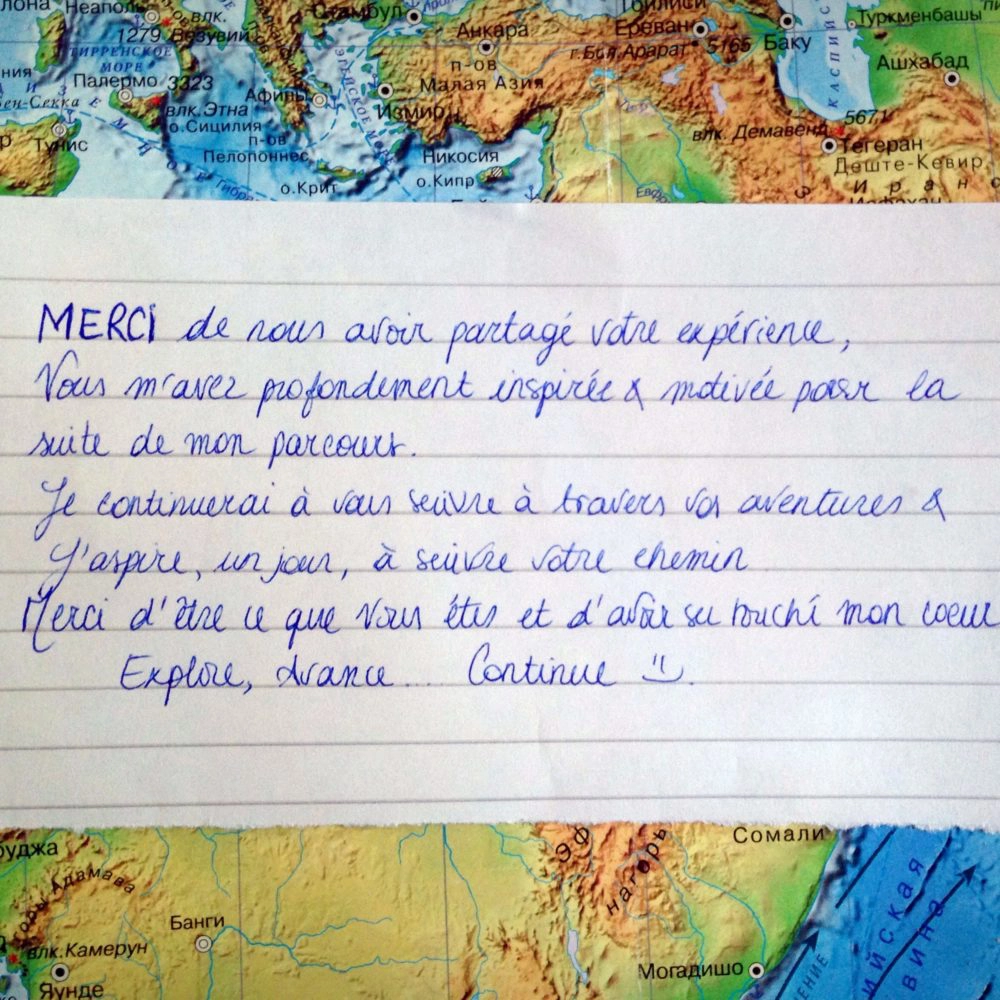 лона
Неаполь
влк.
1279 Везувий
ТИРРЕНСКОЕ
МОРЕ
Палермо 3323
влк.Этна
о.Сицилия
Тунис
Афины
п-ов
Пелопоннес
о.Крит
Стамбул
Анкара
п-ов
Малая Азия
Измир
Никосия
о.Кипр
Тбилиси
Ереван
г.Бол.Арарат 5165
Баку
Туркменбашы
Ашхабад
5671
влк. Демавенд
Тегеран
Деште-Кевир
MERCI de nous avoir partagé votre expérience,
Vous m'avez profondement inspirée & motivée pour la
suite de mon parcours.
Je continuerai à vous suivre à travers vos aventures &
J'aspire, un jour, à suivre votre chemin
Merci d'être ce que vous êtes et d'avoir su touché mon coeur
Explore, Avance... Continue :).
Эф
нагорь
Сомали
буджа
горы Адамава
Банги
влк.Камерун
Яунде
Могадишо